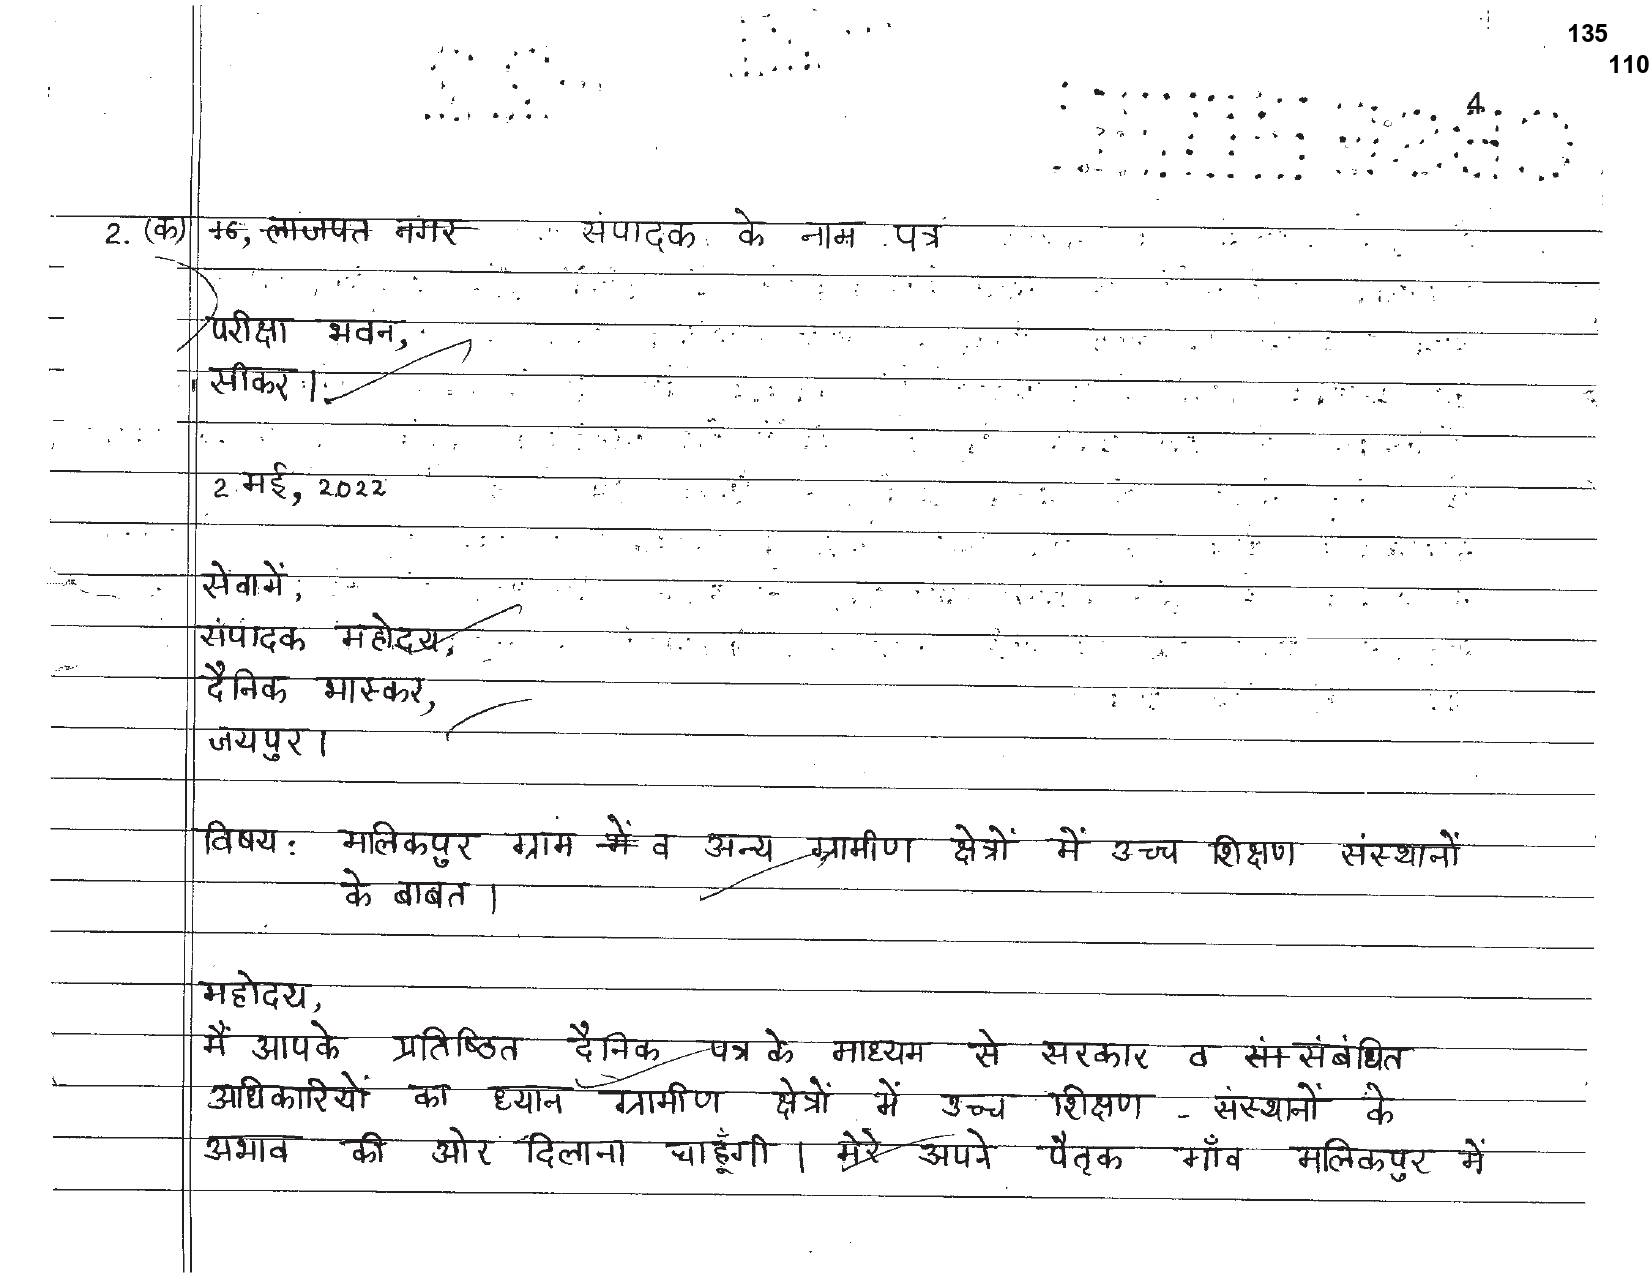 135
110
4
2. (क) ~~16, लाजपत नगर~~ संपादक के नाम पत्र
परीक्षा भवन,
सीकर।
2 मई, 2022
सेवामें,
संपादक महोदय,
दैनिक भास्कर,
जयपुर।
विषय: मलिकपुर ग्राम ~~में~~ व अन्य ग्रामीण क्षेत्रों में उच्च शिक्षण संस्थानों
के बाबत।
महोदय,
मैं आपके प्रतिष्ठित दैनिक पत्र के माध्यम से सरकार व ~~सं~~ संबंधित
अधिकारियों का ध्यान ग्रामीण क्षेत्रों में उच्च शिक्षण - संस्थानों के
अभाव की ओर दिलाना चाहूँगी। मेरे अपने पैतृक गाँव मलिकपुर में